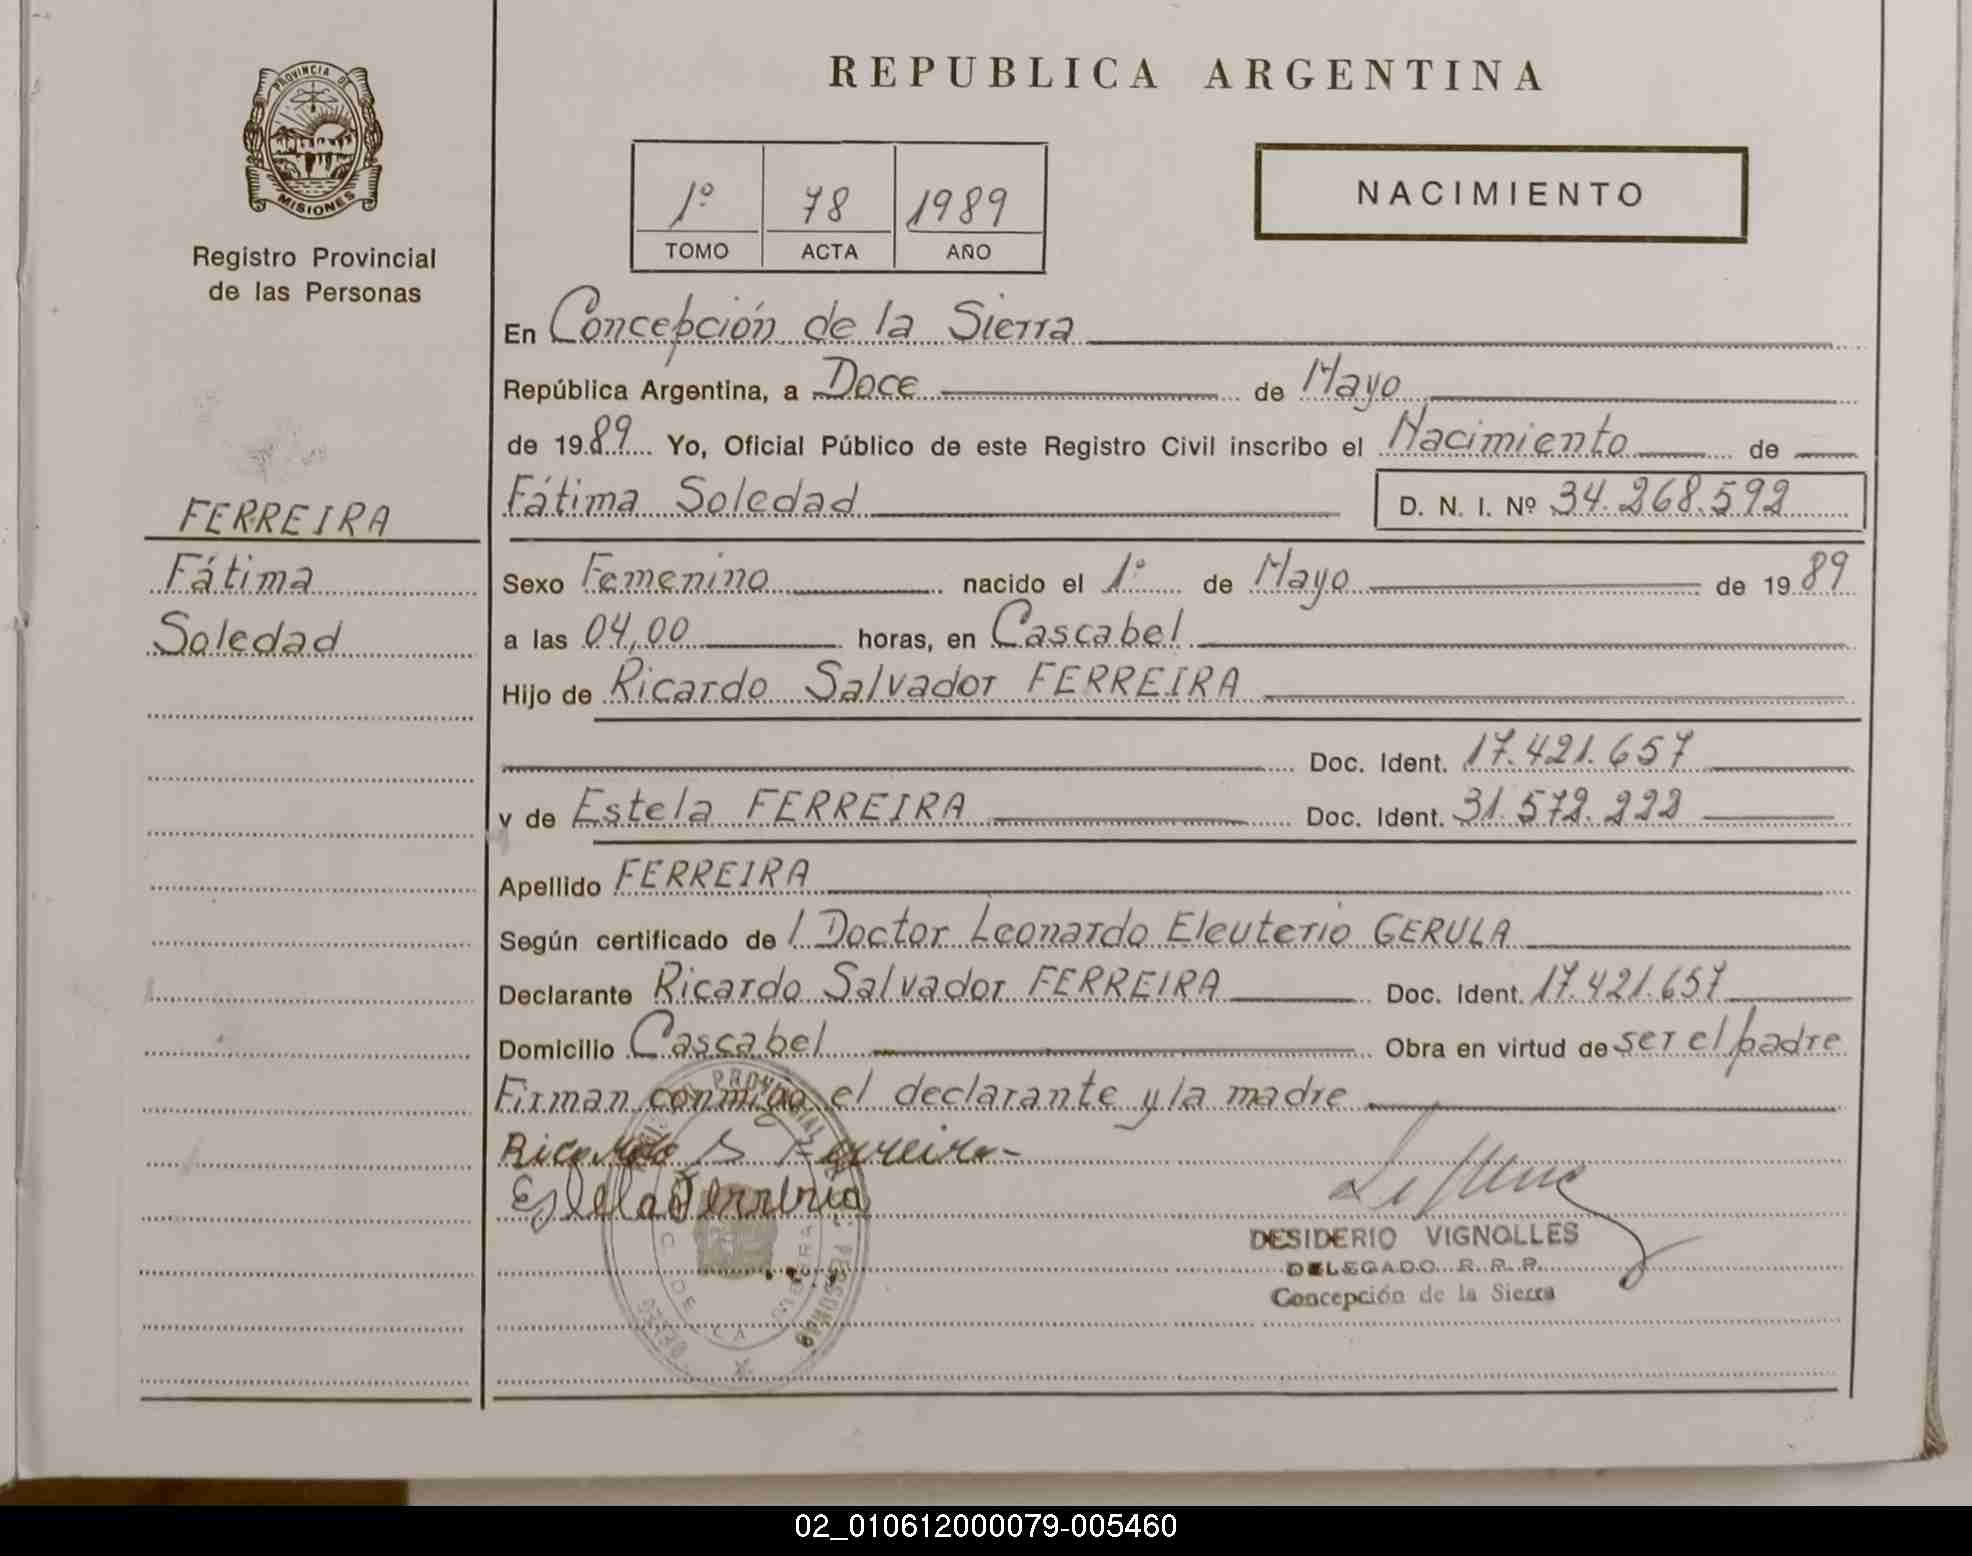 REPUBLICA ARGENTINA
PROVINCIA DE
MISIONES
Registro Provincial
de las Personas
1º 78 1989
TOMO ACTA AÑO
NACIMIENTO
En Concepción de la Sierra
República Argentina, a Doce de Mayo
de 1989 Yo, Oficial Público de este Registro Civil inscribo el Nacimiento de
Fátima Soledad D. N. I. Nº 34.268.592
FERREIRA
Fátima
Soledad
Sexo Femenino nacido el 1º de Mayo de 1989
a las 04,00 horas, en Cascabel
Hijo de Ricardo Salvador FERREIRA
Doc. Ident. 17.421.657
y de Estela FERREIRA Doc. Ident. 31.572.222
Apellido FERREIRA
Según certificado de l Doctor Leonardo Eleuterio GERULA
Declarante Ricardo Salvador FERREIRA Doc. Ident. 17.421.657
Domicilio Cascabel Obra en virtud de ser el padre
Firman conmigo el declarante y la madre
Ricardo S Ferreira
Estela Ferreria
DESIDERIO VIGNOLLES
DELEGADO R. R. P.
Concepción de la Sierra
02_010612000079-005460